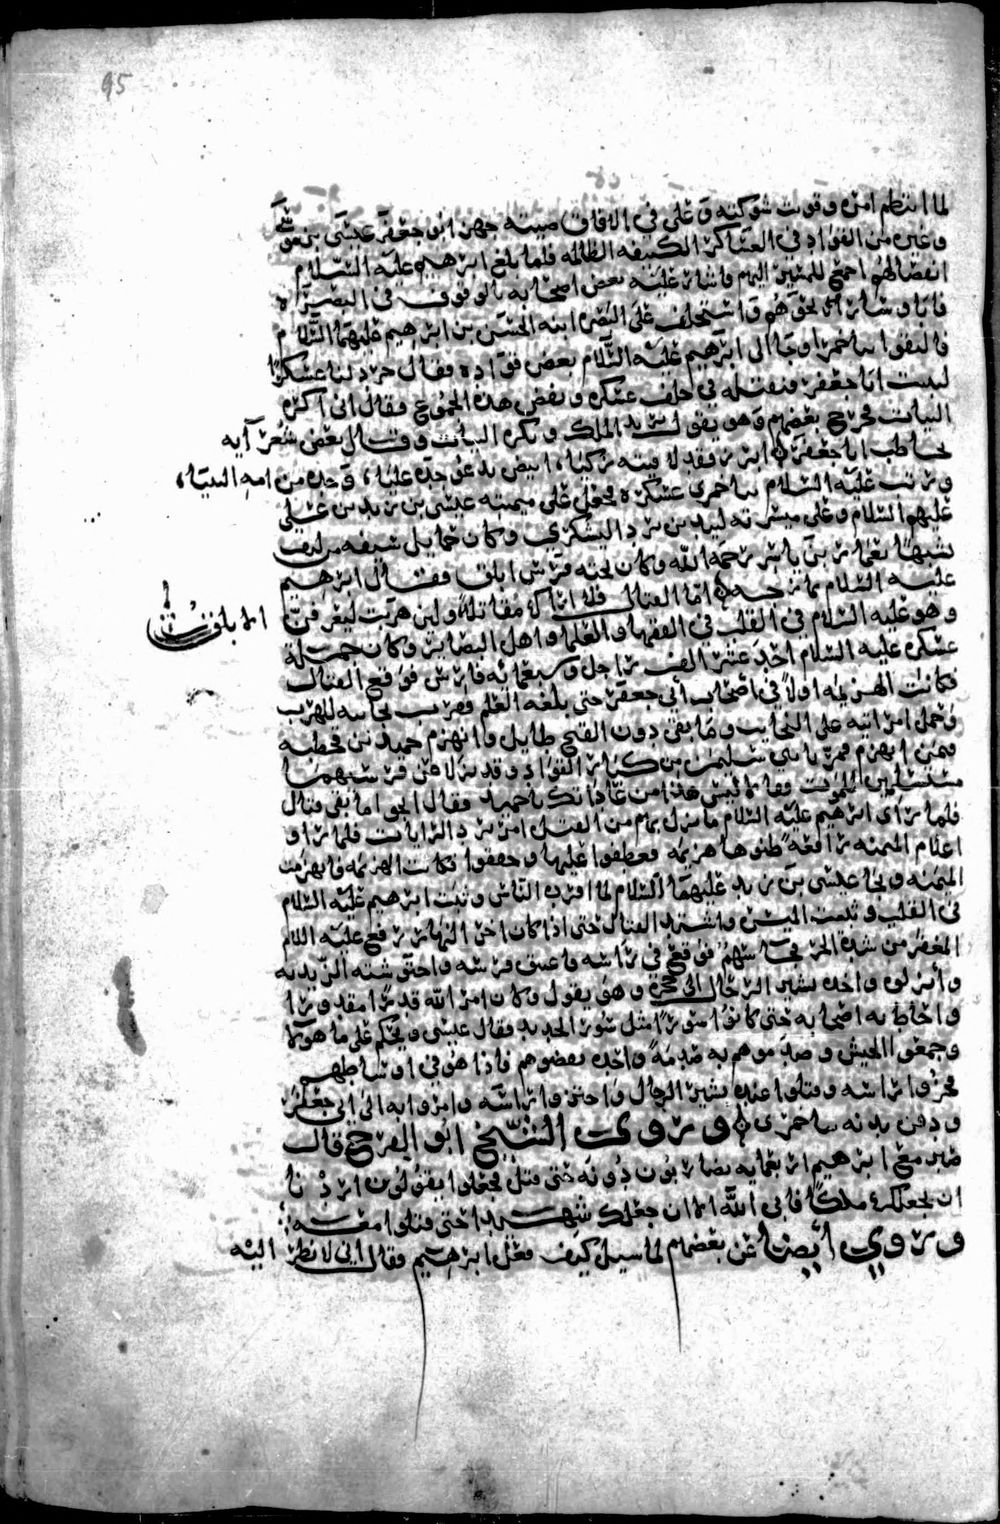 95
لما انتظم امره وقويت شوكته وعلى في الافاق صيته جهز ابو جعفر عيسى بن موسى
وغيره من القواد في العساكر الكثيفه الظالمه فلما بلغ ابرهيم عليه السلام
انفصالهم اجمع للمسير اليهم فاشار عليه بعض اصحابه بالوقوف في البصره
فابا وسار نحوهم واستخلف على البصره ابنه الحسن بن ابرهيم عليهما السلام
فالتقوا بباخمرا وجا الى ابرهيم عليه السلام بعض قواده فقال جرد لنا عسكرا
لنبيت ابا جعفر فنقتله في خلف عسكره ونفض هذه الجموع فقال اني اكره
البيات فخرج بعضهم وهو يقول تريد الملك وتكره البيات وقال بعض شعرايه
يخاطب ابا جعفر ابرز فقد لاقيته زكيا، ابيض يدعو جده عليا، وجده من امه النبيا،
ورتب عليه السلام بباخمرى عسكره فجعل على ميمنته عيسى بن زيد بن علي
عليهم السلام وعلى ميسرته لبيد بن برد اليشكري وكان حمايل سيفه من ليف
تشبها بعمار بن ياسر رحمه الله وكان تحته فرس ابلق فقال ابرهيم
عليه السلام يمازحه اما القتال فلا اراك مقاتلا ولين هربت ليعرفن الابلق
وهو عليه السلام في القلب في الفقها والعلما واهل البصاير وكان جملة
عسكره عليه السلام احد عشر الف راجل وسبعمائه فارس فوقع القتال
فكانت الهزيمه اولا في اصحاب ابي جعفر حتى بلغه العلم فقرب نجايبه للهرب
وحمل امراته على النجايب وما بقي دون الفتح طايل وانهزم حميد بن قحطبه
فيمن انهزم فمر بابني سليمان من كبار القواد وقد نزلا عن فرسيهما
مستسلمين للموت فقالا ليس هذا من عاداتك يا حميد فقال الحق اما بقي قتال
فلما راى ابرهيم عليه السلام ما نزل بهم من القتل امر برد الرايات فلما راوا
اعلام الميمنه راجعه ظنوها هزيمه فعطفوا عليها وحققوا فكانت الهزيمه فانهزمت
الميمنه ونجا عيسى بن زيد عليهما السلام لما افترق الناس وثبت ابرهيم عليه السلام
في القلب وثبتت الميسره واشتد القتال حتى اذا كان اخر النهار رفع عليه السلام
المغفر من شدة الحر فجا سهم فوقع في راسه فاعتنق فرسه واحتوشته الزيديه
وانزلوه واخذه بشير الرحال الى حجره وهو يقول وكان امر الله قدرا مقدورا
واحاط به اصحابه حتى كانوا سورا مثل سور الحديد فقال عيسى ويحكم على ما هولا
وجمعوا الجيش وصدموهم به صدمة واحده نعضوهم فاذا هو في اوساطهم
فحزوا راسه وقتلوا عنده بشير الرحال واحتزوا راسه وامروا به الى ابي جعفر
ودفن بدنه بباخمرى وروى الشيخ ابو الفرج قال
صبر مع ابرهيم اربعمايه يضاربون دونه حتى قتل فجعلوا يقولون اردنا
ان نجعلك ملكا فابى الله الا ان جعلك شهيدا حتى قتلوا معه
وروي ايضا عن بعضهم لما سيل كيف قتل ابرهيم فقال اني لانظر اليه